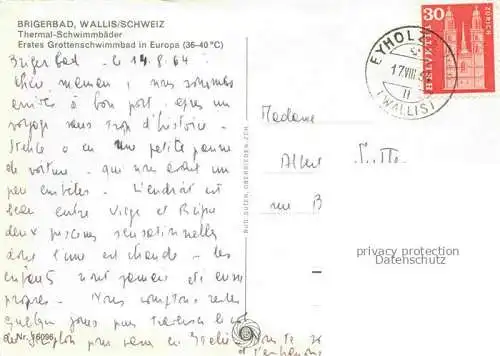 BRIGERBAD, WALLIS/SCHWEIZ
Thermal-Schwimmbäder
Erstes Grottenschwimmbad in Europa (36-40 °C)
Brigerbad - le 14.8.64
Chère maman, nous sommes
à bon port, après un
voyage sans trop d'histoire.
a eu une petite panne
de voiture - qui nous avait un
peu L'endroit est
beau entre Viège et Brigue
deux piscines sensationnelles
dont l'une est chaude - les
enfants sont jamais été aussi
propres. Nous comptons rester
quelques jours puis traverser le col
du Simplon pour
Nr. 16096
RUD. SUTER, OBERRIEDEN-ZCH.
EYHOLZ
17.VIII.
(WALLIS)
30
HELVETIA
ZÜRICH
Madame
Albert
rue B
privacy protection
Datenschutz